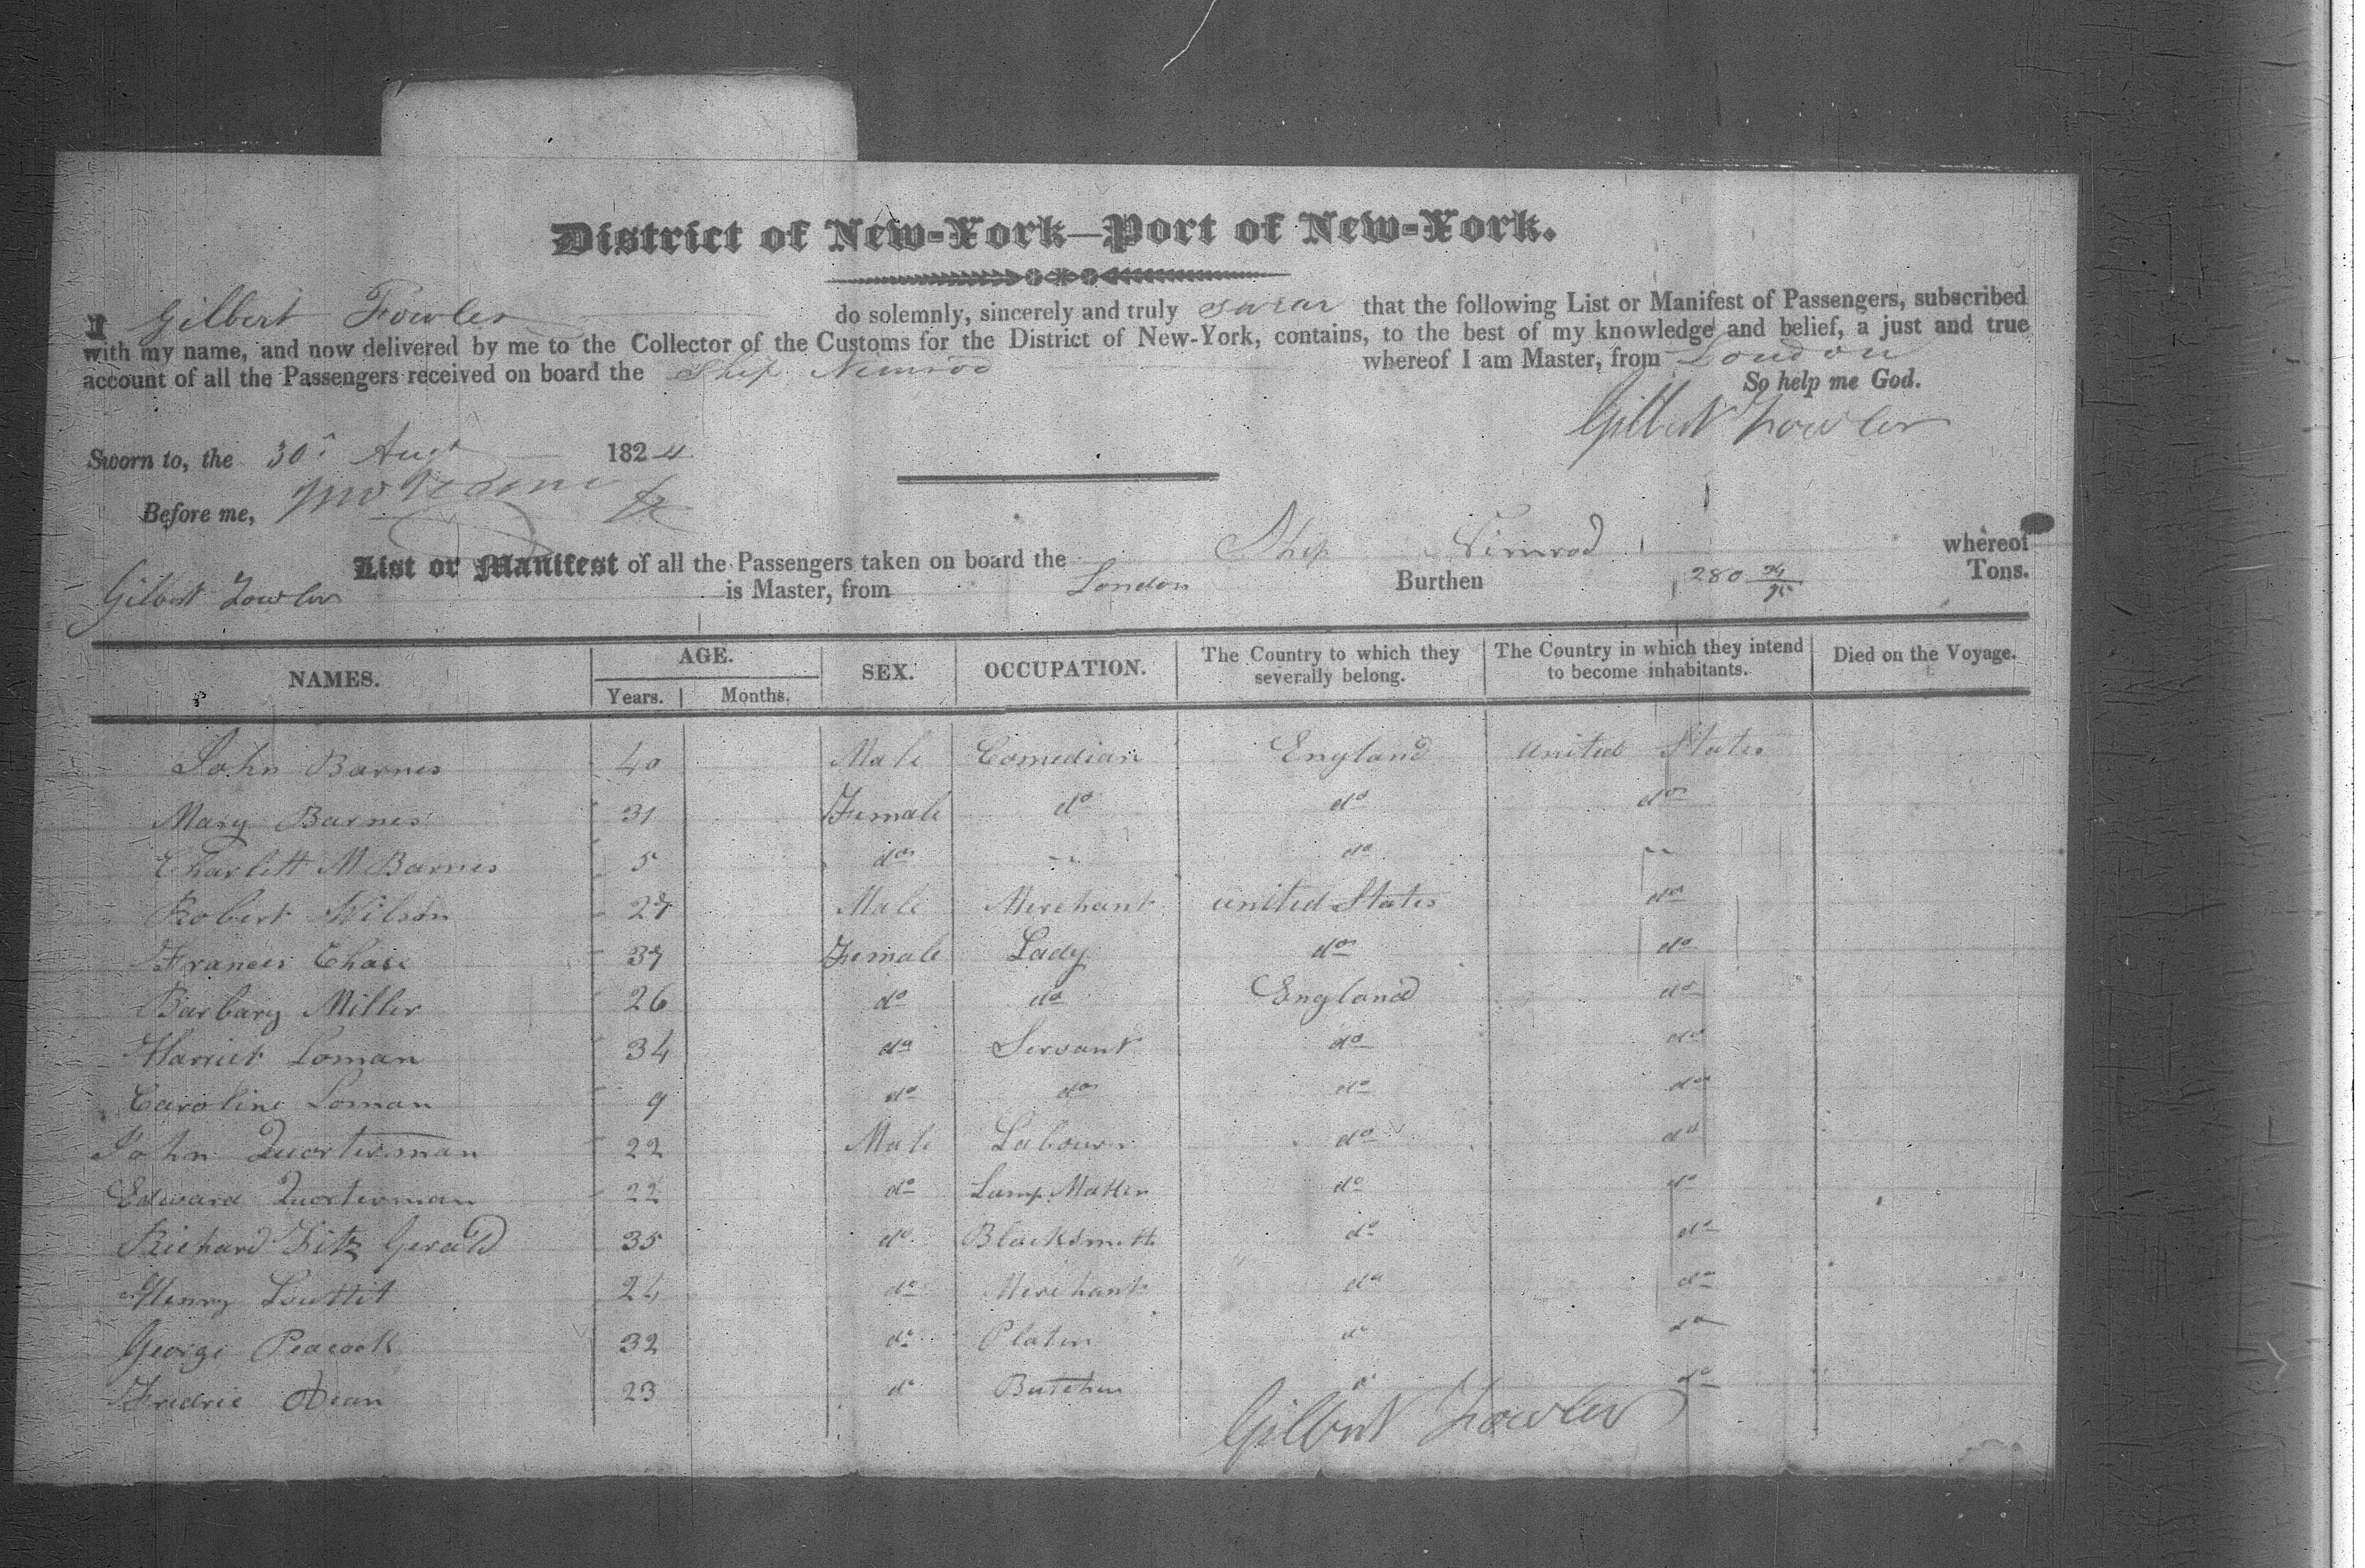 District of New-York—Port of New-York.
I Gilbert Fowler do solemnly, sincerely and truly swear that the following List or Manifest of Passengers, subscribed
with my name, and now delivered by me to the Collector of the Customs for the District of New-York, contains, to the best of my knowledge and belief, a just and true
account of all the Passengers received on board the Ship Nimrod whereof I am Master, from London
So help me God.
Gilbert Fowler
Sworn to, the 30 Augt 1824
Before me,
List or Manifest of all the Passengers taken on board the Ship Nimrod whereof
Gilbert Fowler is Master, from London Burthen 280 Tons.
NAMES. AGE. SEX. OCCUPATION. The Country to which they severally belong. The Country in which they intend to become inhabitants. Died on the Voyage.
Years. Months.
John Barnes 40 Male Comedian England United States
Mary Barnes 31 Female do do do
Charlett M Barnes 5 do do
Robert Wilson 27 Male Merchant United States do
Frances Chase 37 Female Lady do do
Barbary Miller 26 do do England do
Harriet Loman 34 do Servant do do
Caroline Loman 9 do do do do
John Quorterman 22 Male Labourer do do
Edward Quorterman 22 do Lamp do do
Richard Fitz Gerald 35 do Blacksmith do do
Henry Luttit 24 do Merchant do do
George Peacock 32 do Plater do do
Fredric Dean 23 do Butcher do do
Gilbert Fowler